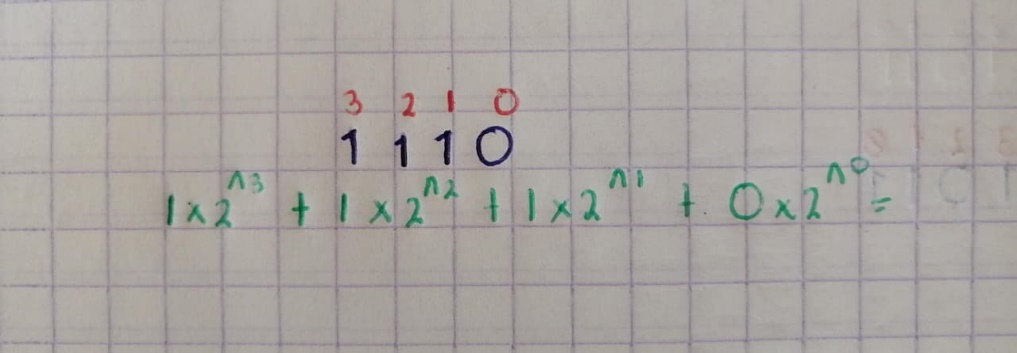 3 2 1 0
1 1 1 0
1 x 2^3 + 1 x 2^2 + 1 x 2^1 + 0 x 2^0 =